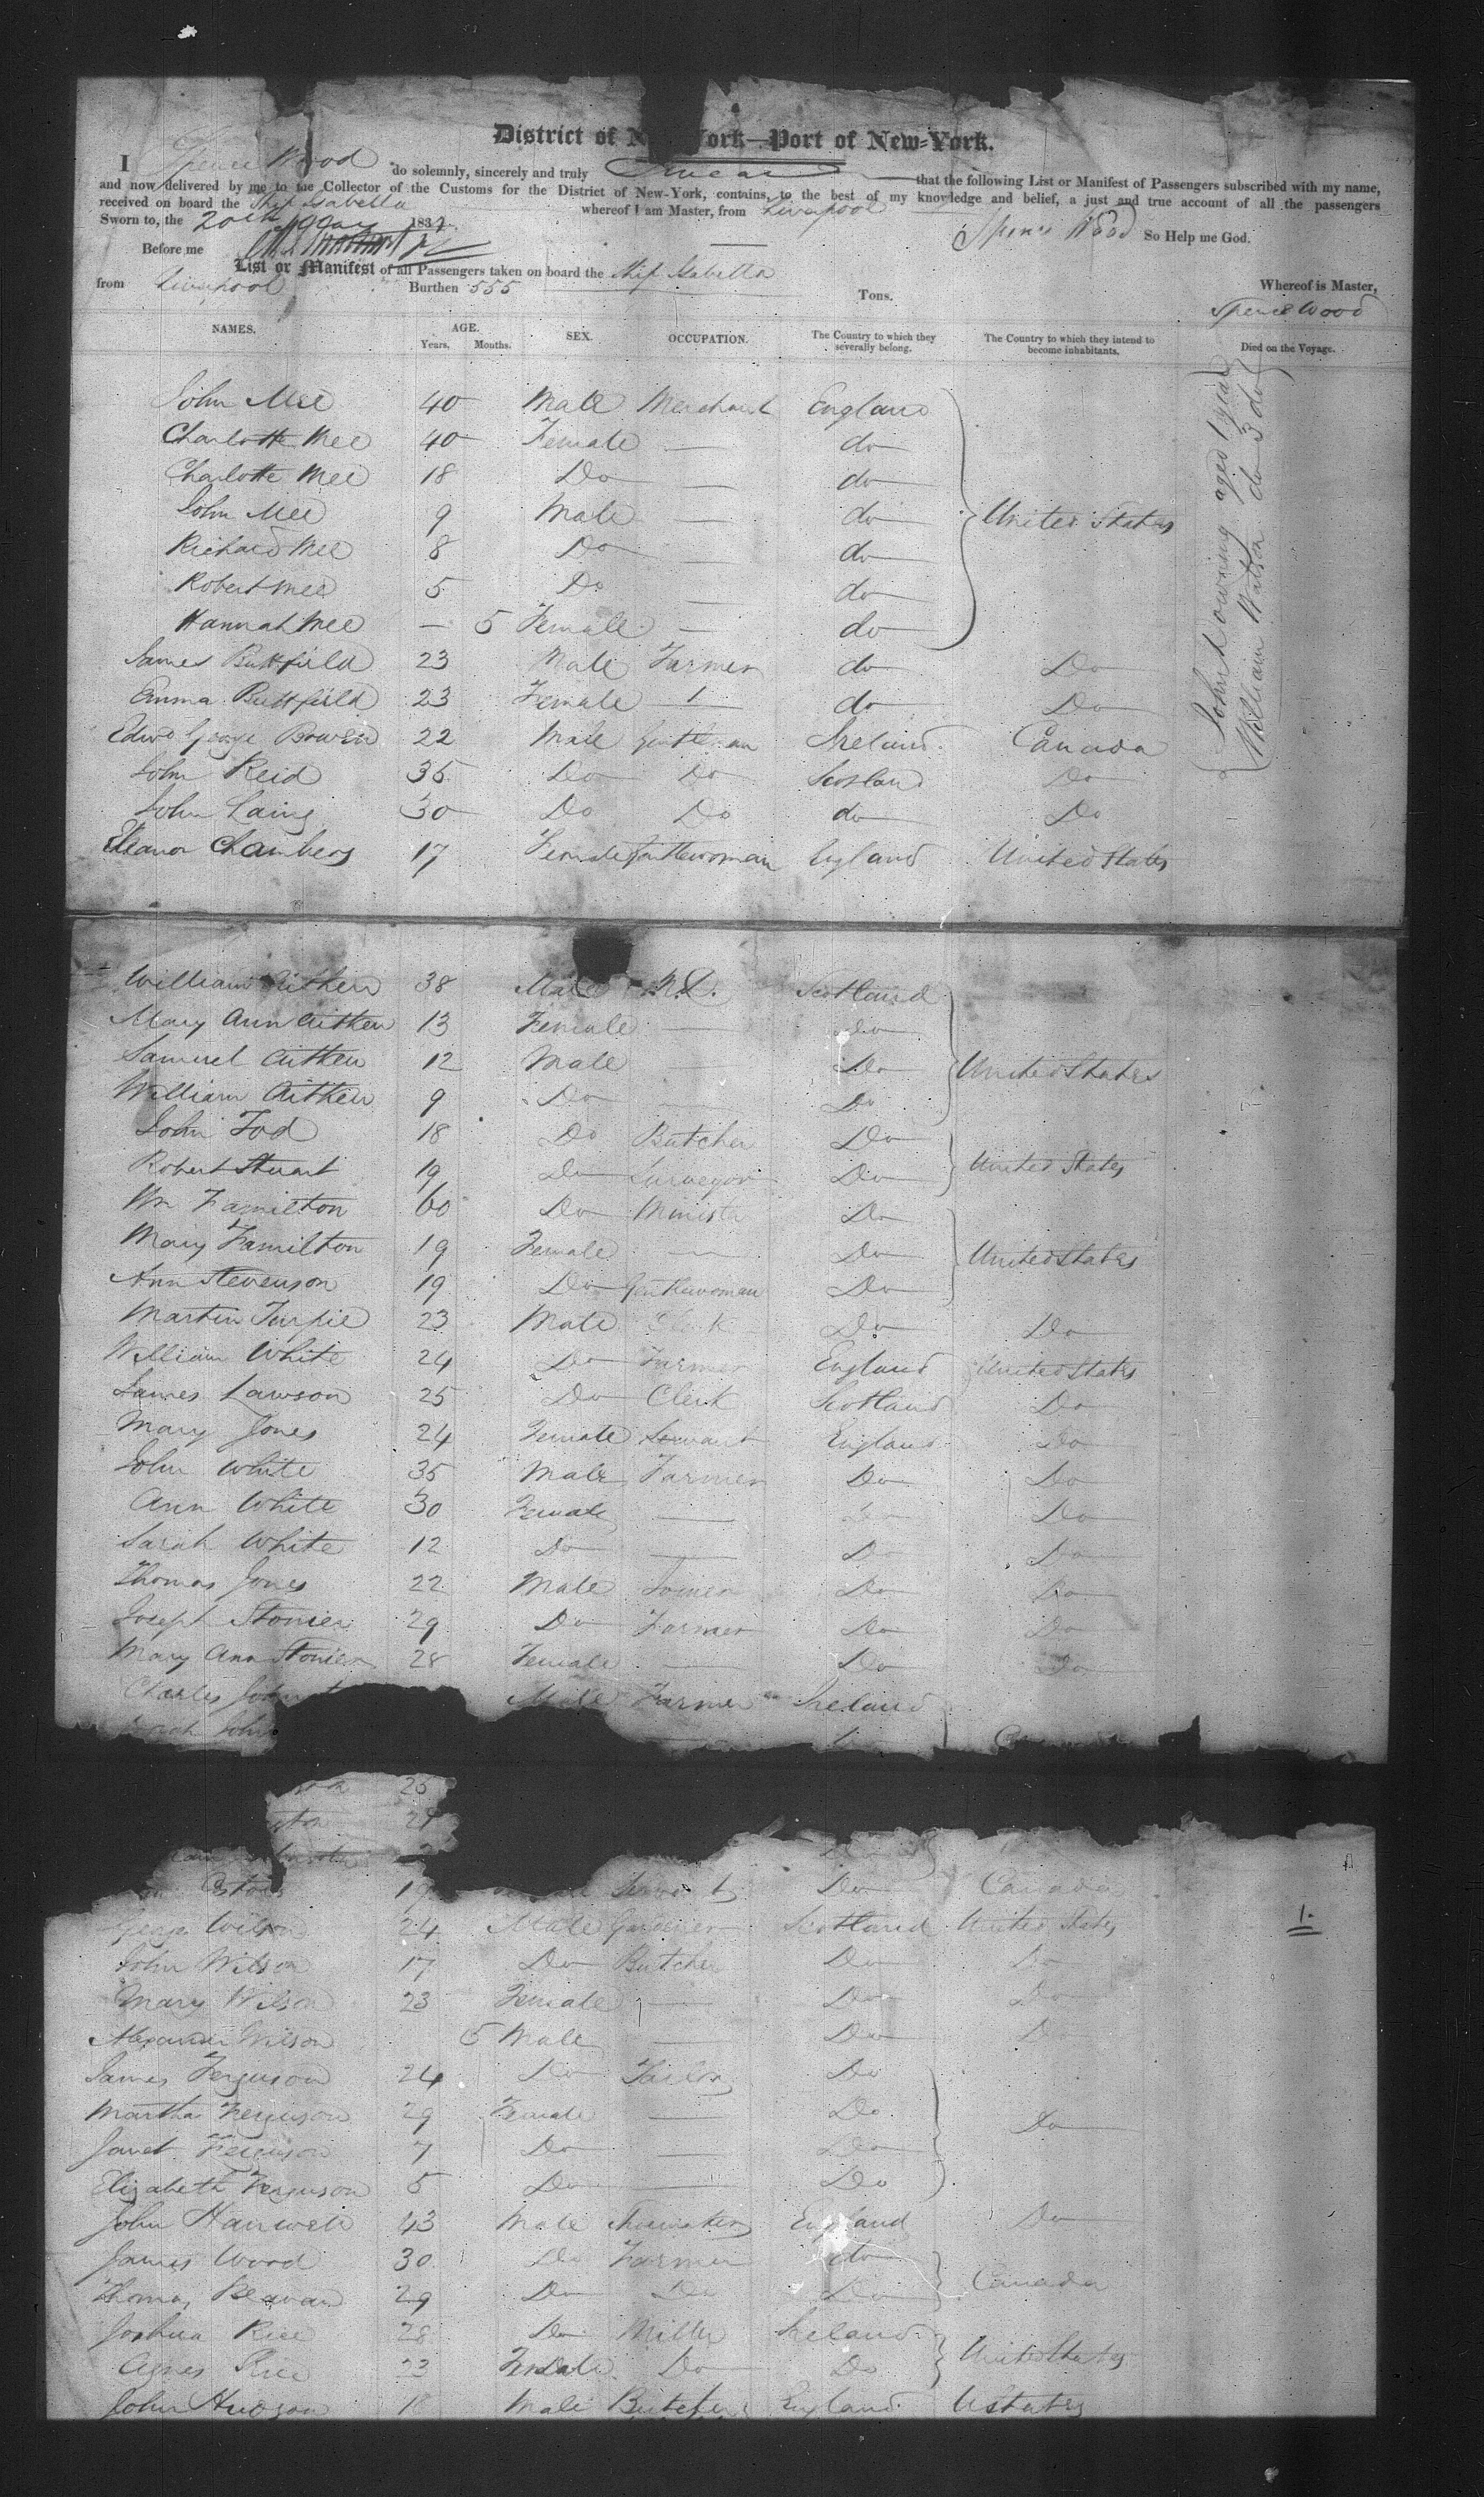 District of N York—Port of New-York.
I Spence Wood do solemnly, sincerely and truly Swear that the following List or Manifest of Passengers subscribed with my name,
and now delivered by me to the Collector of the Customs for the District of New-York, contains, to the best of my knowledge and belief, a just and true account of all the passengers
received on board the Ship Isabella whereof I am Master, from Liverpool
Sworn to, the 20th May 183 Spence Wood So Help me God.
Before me
List or Manifest of all Passengers taken on board the Ship Isabella
from Liverpool Burthen 555 Tons. Whereof is Master,
Spence Wood
NAMES. AGE. Years. Months. SEX. OCCUPATION. The Country to which they severally belong. The Country to which they intend to become inhabitants. Died on the Voyage.
John Mee 40 Male Merchant England
Charlotte Mee 40 Female — do
Charlotte Mee 18 Do — do
John Mee 9 Male — do United States
Richard Mee 8 Do — do
Robert Mee 5 Do — do
Hannah Mee — 5 Female — do
James Buttfield 23 Male Farmer do Do
Emma Buttfield 23 Female — do Do
Edwd George Bowen 22 Male Gentleman Ireland Canada
John Reid 35 Do Do Scotland Do
John Laing 30 Do Do do Do
Eleanor Chambers 17 Female Gentlewoman England United States
John Downing aged 1 year
William Watson do 3 do
William Aitken 38 Male M.D. Scotland
Mary Ann Aitken 13 Female — Do
Samuel Aitken 12 Male — Do United States
William Aitken 9 Do — Do
John Tod 18 Do Butcher Do
Robert Stuart 19 Do Surveyor Do United States
Wm Hamilton 60 Do Minister Do
Mary Hamilton 19 Female — Do United States
Ann Stevenson 19 Do Gentlewoman Do
Martin Turpie 23 Male Clerk Do Do
William White 24 Do Farmer England United States
James Lawson 25 Do Clerk Scotland Do
Mary Jones 24 Female Servant England Do
John White 35 Male Farmer Do Do
Ann White 30 Female — Do Do
Sarah White 12 Do — Do Do
Thomas Jones 22 Male Joiner Do Do
Joseph Stonier 29 Do Farmer Do Do
Mary Ann Stonier 28 Female — Do Do
Charles John Male Farmer Ireland
John
26
19 Servant Do Canada
George Wilson 24 Male Gardener Scotland United States
John Wilson 17 Do Butcher Do Do
Mary Wilson 23 Female — Do Do
Alexander Wilson 5 Male — Do Do
James Ferguson 24 Do Tailor Do
Martha Ferguson 29 Female — Do Do
Janet Ferguson 7 Do — Do
Elizabeth Ferguson 5 Do — Do
John 43 Male Shoemaker England Do
James Wood 30 Do Farmer do
Thomas Beavan 29 Do Do Do Canada
Joshua Rice 28 Do Miller Ireland
Agnes Rice 23 Female Do Do United States
John Hudson 18 Male Butcher England U States
1.